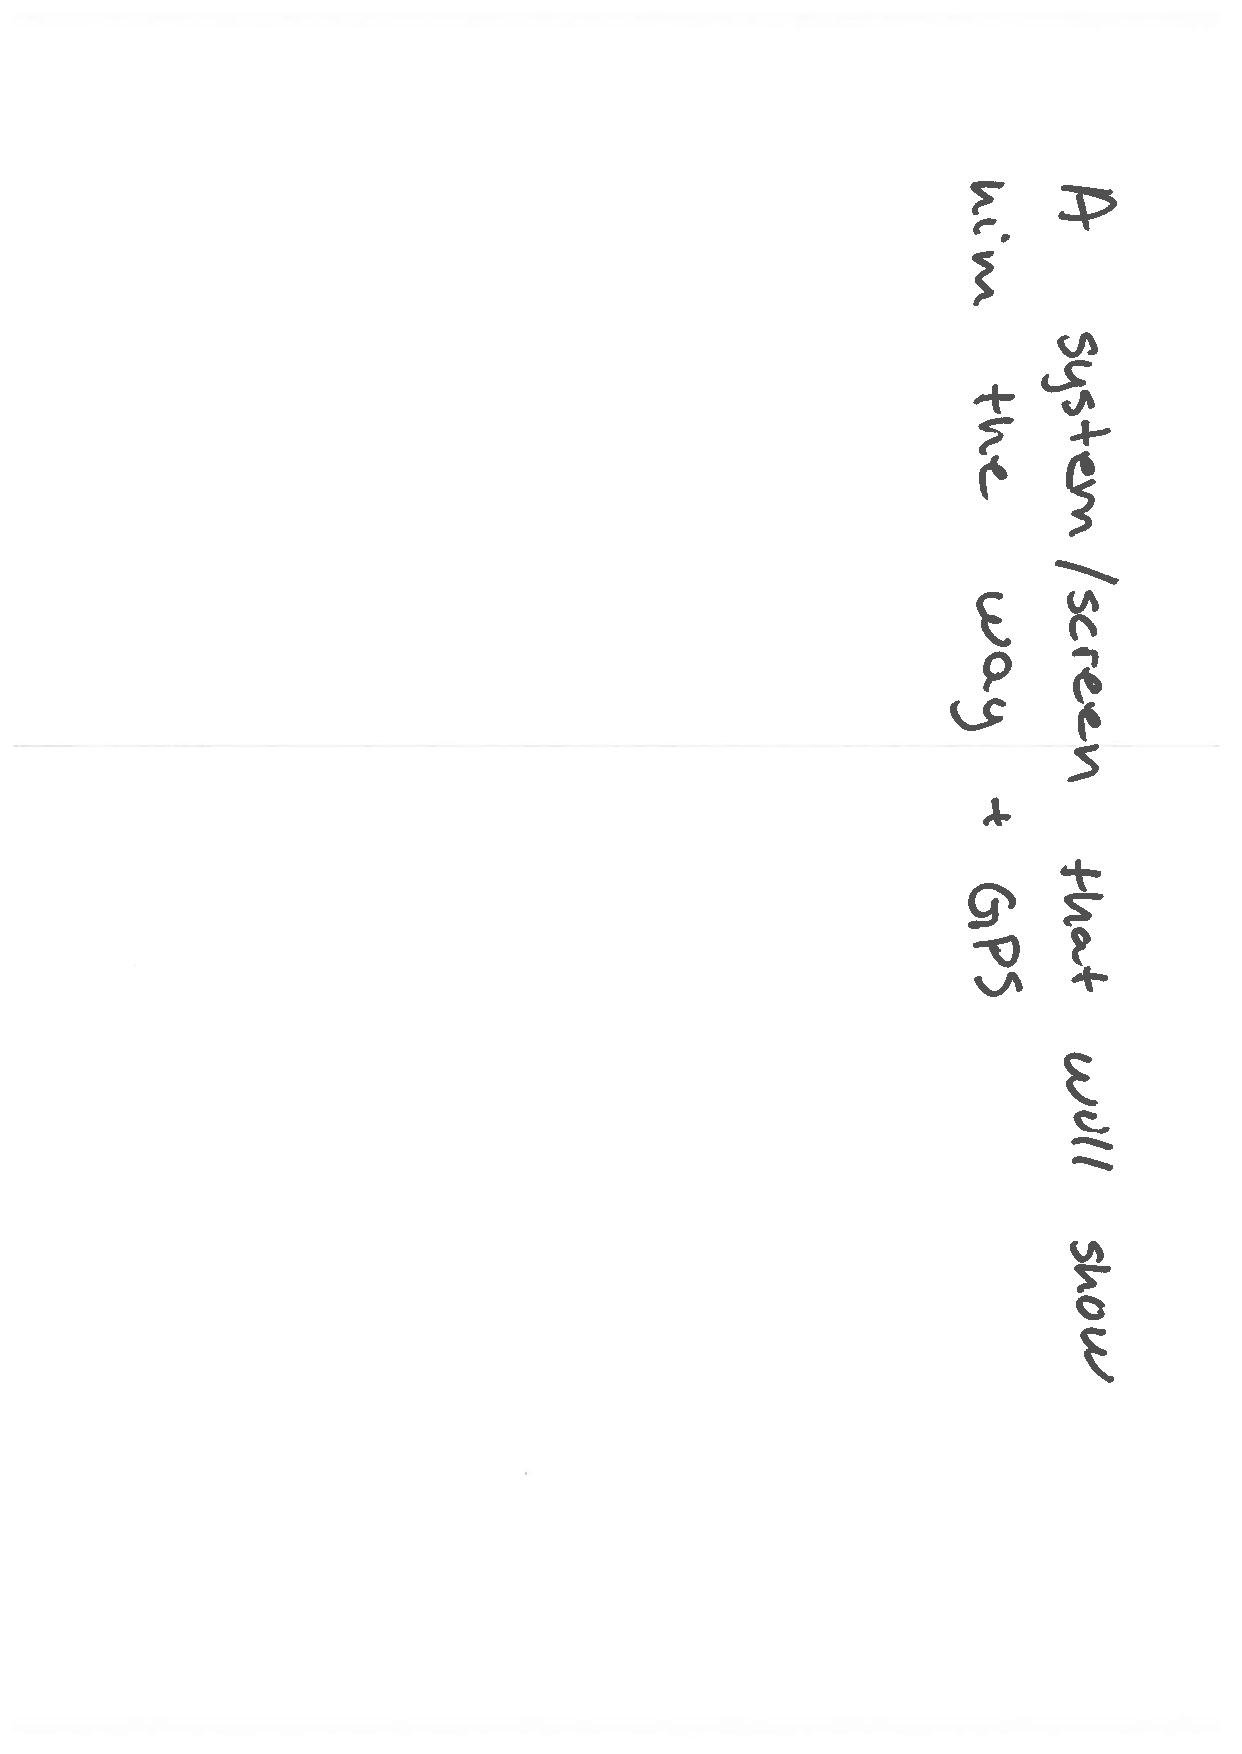 A system/screen that will show
him the way + GPS